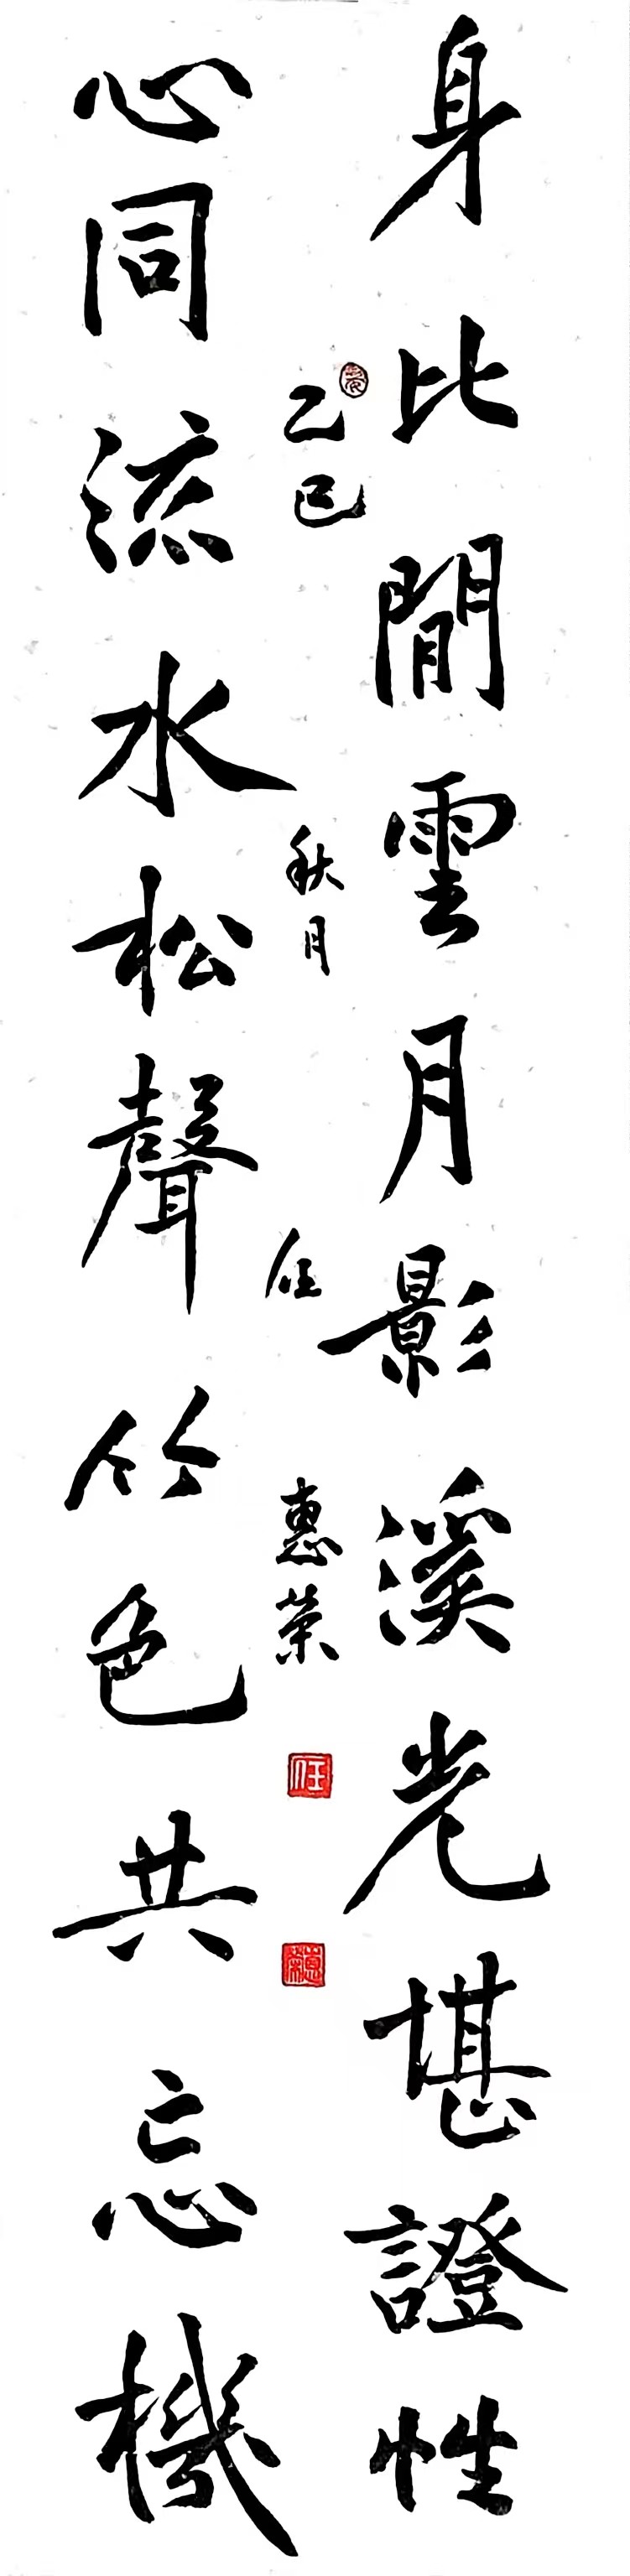 身比閒雲月影溪光堪證性
乙巳
秋月
任
惠榮
任
惠榮
心同流水松聲竹色共忘機